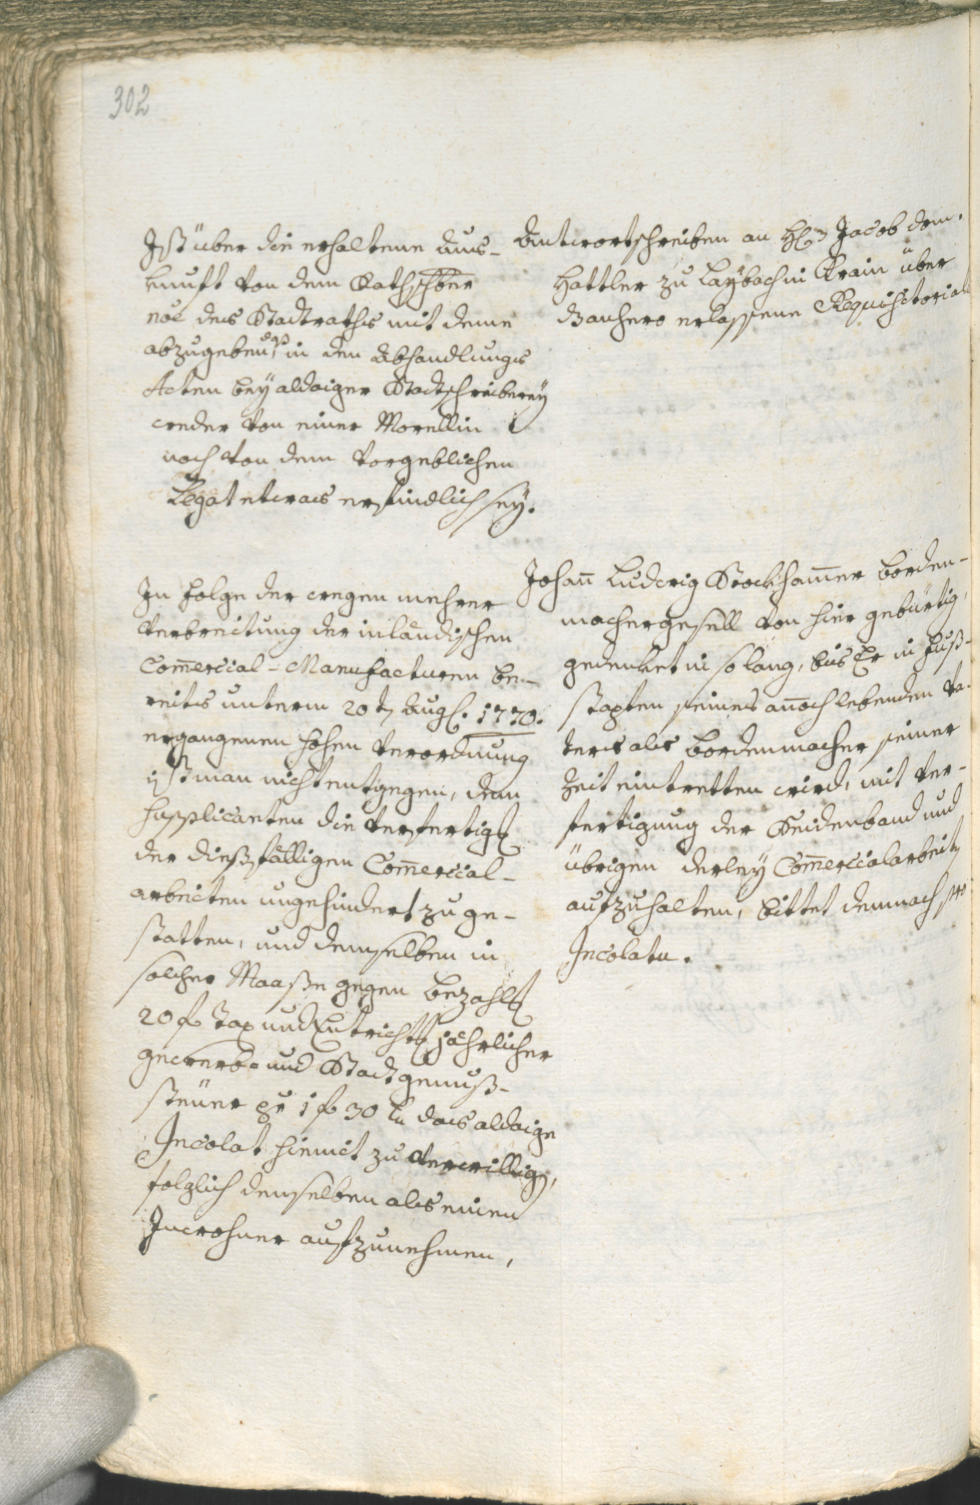 302
Ist über die erhaltene Aus-
kunft von dem Rathschbr
noe des Stadtraths mit deme
abzugeben, in den Abhandlungs
Acten bey aldaiger Stadtschreiberey
weder von einer Morellin
noch von dem vorgeblichen
Legat etwas erfindlich sey.
Antwortschreiben an H Jacob dem.
Hattler zu Laybach in Krain über
Banhero erlassene Requisitorial
In Folge der wegen mehrer
Verbreitung der inländischen
Comercial-Manufacturen be-
reits unterm 20t Aug. 1770.
ergangenen hohen Verordnung
ist man nicht entgegen, dem
Supplicanten die Verfertigg
der dießfälligen Comercial-
arbeiten ungehindert zu ge-
statten, und demselben in
solcher Maaße gegen Bezahlg
20 f Tax und Entrichtg jährlicher
gewerbs- und Stadtgenuß-
steüer pr 1 f 30 kr das aldaige
Incolat hiemit zu verwillig,
folglich denselben als einen
Inwohner aufzunehmen,
Johann Ludwig Stockhammer Borden-
machergesell von hier gebürtig,
gedenket in so lang, bis Er in Fuß-
stapfen seines annoch lebenden Va-
ters als Bordenmacher seiner
Zeit eintretten wird, mit Ver-
fertigung der Seidenband und
übrigen derley Comercialarbeit
aufzuhalten, bittet demnach pto
Incolatu.